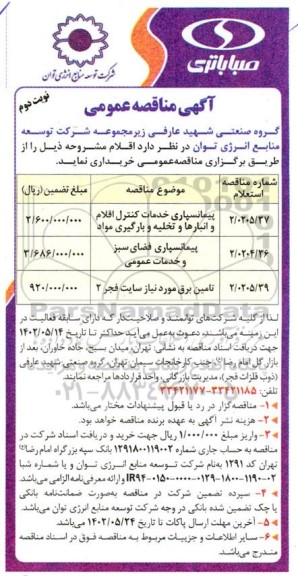 صباباتری
شرکت توسعه منابع انرژی توان
نوبت دوم
آگهی مناقصه عمومی
گروه صنعتی شهید عارفی زیرمجموعه شرکت توسعه
منابع انرژی توان در نظر دارد اقلام مشروحه ذیل را از
طریق برگزاری مناقصه عمومی خریداری نماید.
شماره مناقصه استعلام موضوع مناقصه مبلغ تضمین (ریال)
۲/۰۲۰۵/۳۷ پیمانسپاری خدمات کنترل اقلام و انبارها و تخلیه و بارگیری مواد ۲/۶۰۰/۰۰۰/۰۰۰
۲/۰۲۰۴/۲۶ پیمانسپاری فضای سبز و خدمات عمومی ۳/۶۸۶/۰۰۰/۰۰۰
۲/۰۲۰۵/۳۹ تامین برق مورد نیاز سایت فجر ۲ ۹۲۰/۰۰۰/۰۰۰
لذا از کلیه شرکت‌های توانمند و صلاحیت‌دار که دارای سابقه فعالیت در
این زمینه می‌باشند، دعوت به عمل می‌آید حداکثر تا تاریخ ۱۴۰۲/۰۵/۱۴
جهت دریافت اسناد مناقصه به نشانی تهران، میدان بسیج، جاده خاوران، بعد از
بازار گل امام رضا، جنب کارخانجات سیمان تهران، گروه صنعتی شهید عارفی
(ذوب فلزات فجر)، مدیریت بازرگانی، واحد قراردادها مراجعه نمایند.
تلفن: ۳۳۴۲۱۱۸۵-۳۳۴۲۱۱۷۷
۱- مناقصه‌گزار در رد یا قبول پیشنهادات مختار می‌باشد.
۲- هزینه نشر آگهی به عهده برنده مناقصه خواهد بود.
۳- واریز مبلغ ۱/۰۰۰/۰۰۰ ریال جهت خرید و دریافت اسناد شرکت در
مناقصه به حساب جاری شماره ۱۲۹۱۸۰۰۱۱۹۰۰۲ بانک سپه بزرگراه امام رضا
تهران کد ۱۲۹۱ به‌نام شرکت توسعه منابع انرژی توان و یا شماره شبا
IR۹۴-۰۱۵۰-۰۰۰۰-۰۱۲۹-۱۸۰۰-۱۱۹۰-۰۲ و ارائه معرفی‌نامه الزامی می‌باشد.
۴- سپرده تضمین شرکت در مناقصه به‌صورت ضمانت‌نامه بانکی
یا چک تضمین شده بانکی در وجه شرکت توسعه منابع انرژی توان می‌باشد.
۵- آخرین مهلت ارسال پاکات تا تاریخ ۱۴۰۲/۰۵/۲۴ می‌باشد.
۶- سایر اطلاعات و جزییات مربوط به مناقصه فوق در اسناد مناقصه
مندرج می‌باشد.